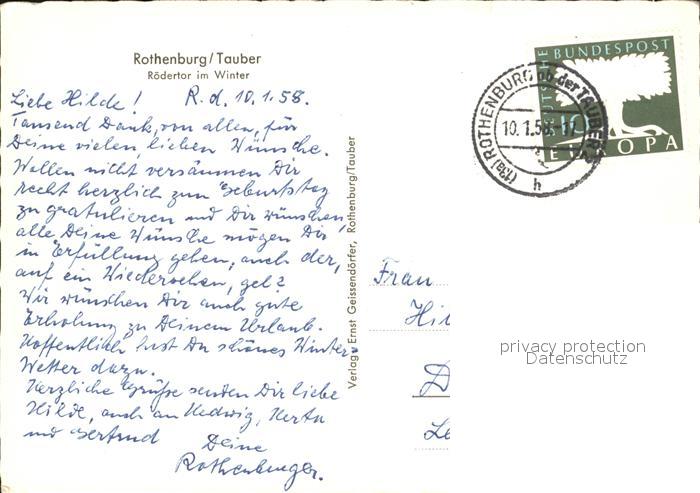 Rothenburg/Tauber
Rödertor im Winter
Liebe Hilde! R.d. 10.1.58.
Tausend Dank, von allen, für
Deine vielen, lieben Wünsche.
Wollen nicht versäumen Dir
recht herzlich zum Geburtstag
zu gratulieren und Dir wünschen,
alle Deine Wünsche mögen Dir
in Erfüllung gehen, auch der,
auf ein Wiedersehen, gel?
Wir wünschen Dir auch gute
Erholung zu Deinem Urlaub.
Hoffentlich hast Du schönes Winter-
Wetter dazu.
Herzliche Grüße senden Dir liebe
Hilde, auch an Hedwig, Herta
und Gertrud
Deine
Rothenburger.
Verlag: Ernst Geissendörfer, Rothenburg/Tauber
(13a) ROTHENBURG ob der TAUBER
10.1.58.-17
h
DEUTSCHE BUNDESPOST
EUROPA
Frau
Hil
D
Le
privacy protection
Datenschutz